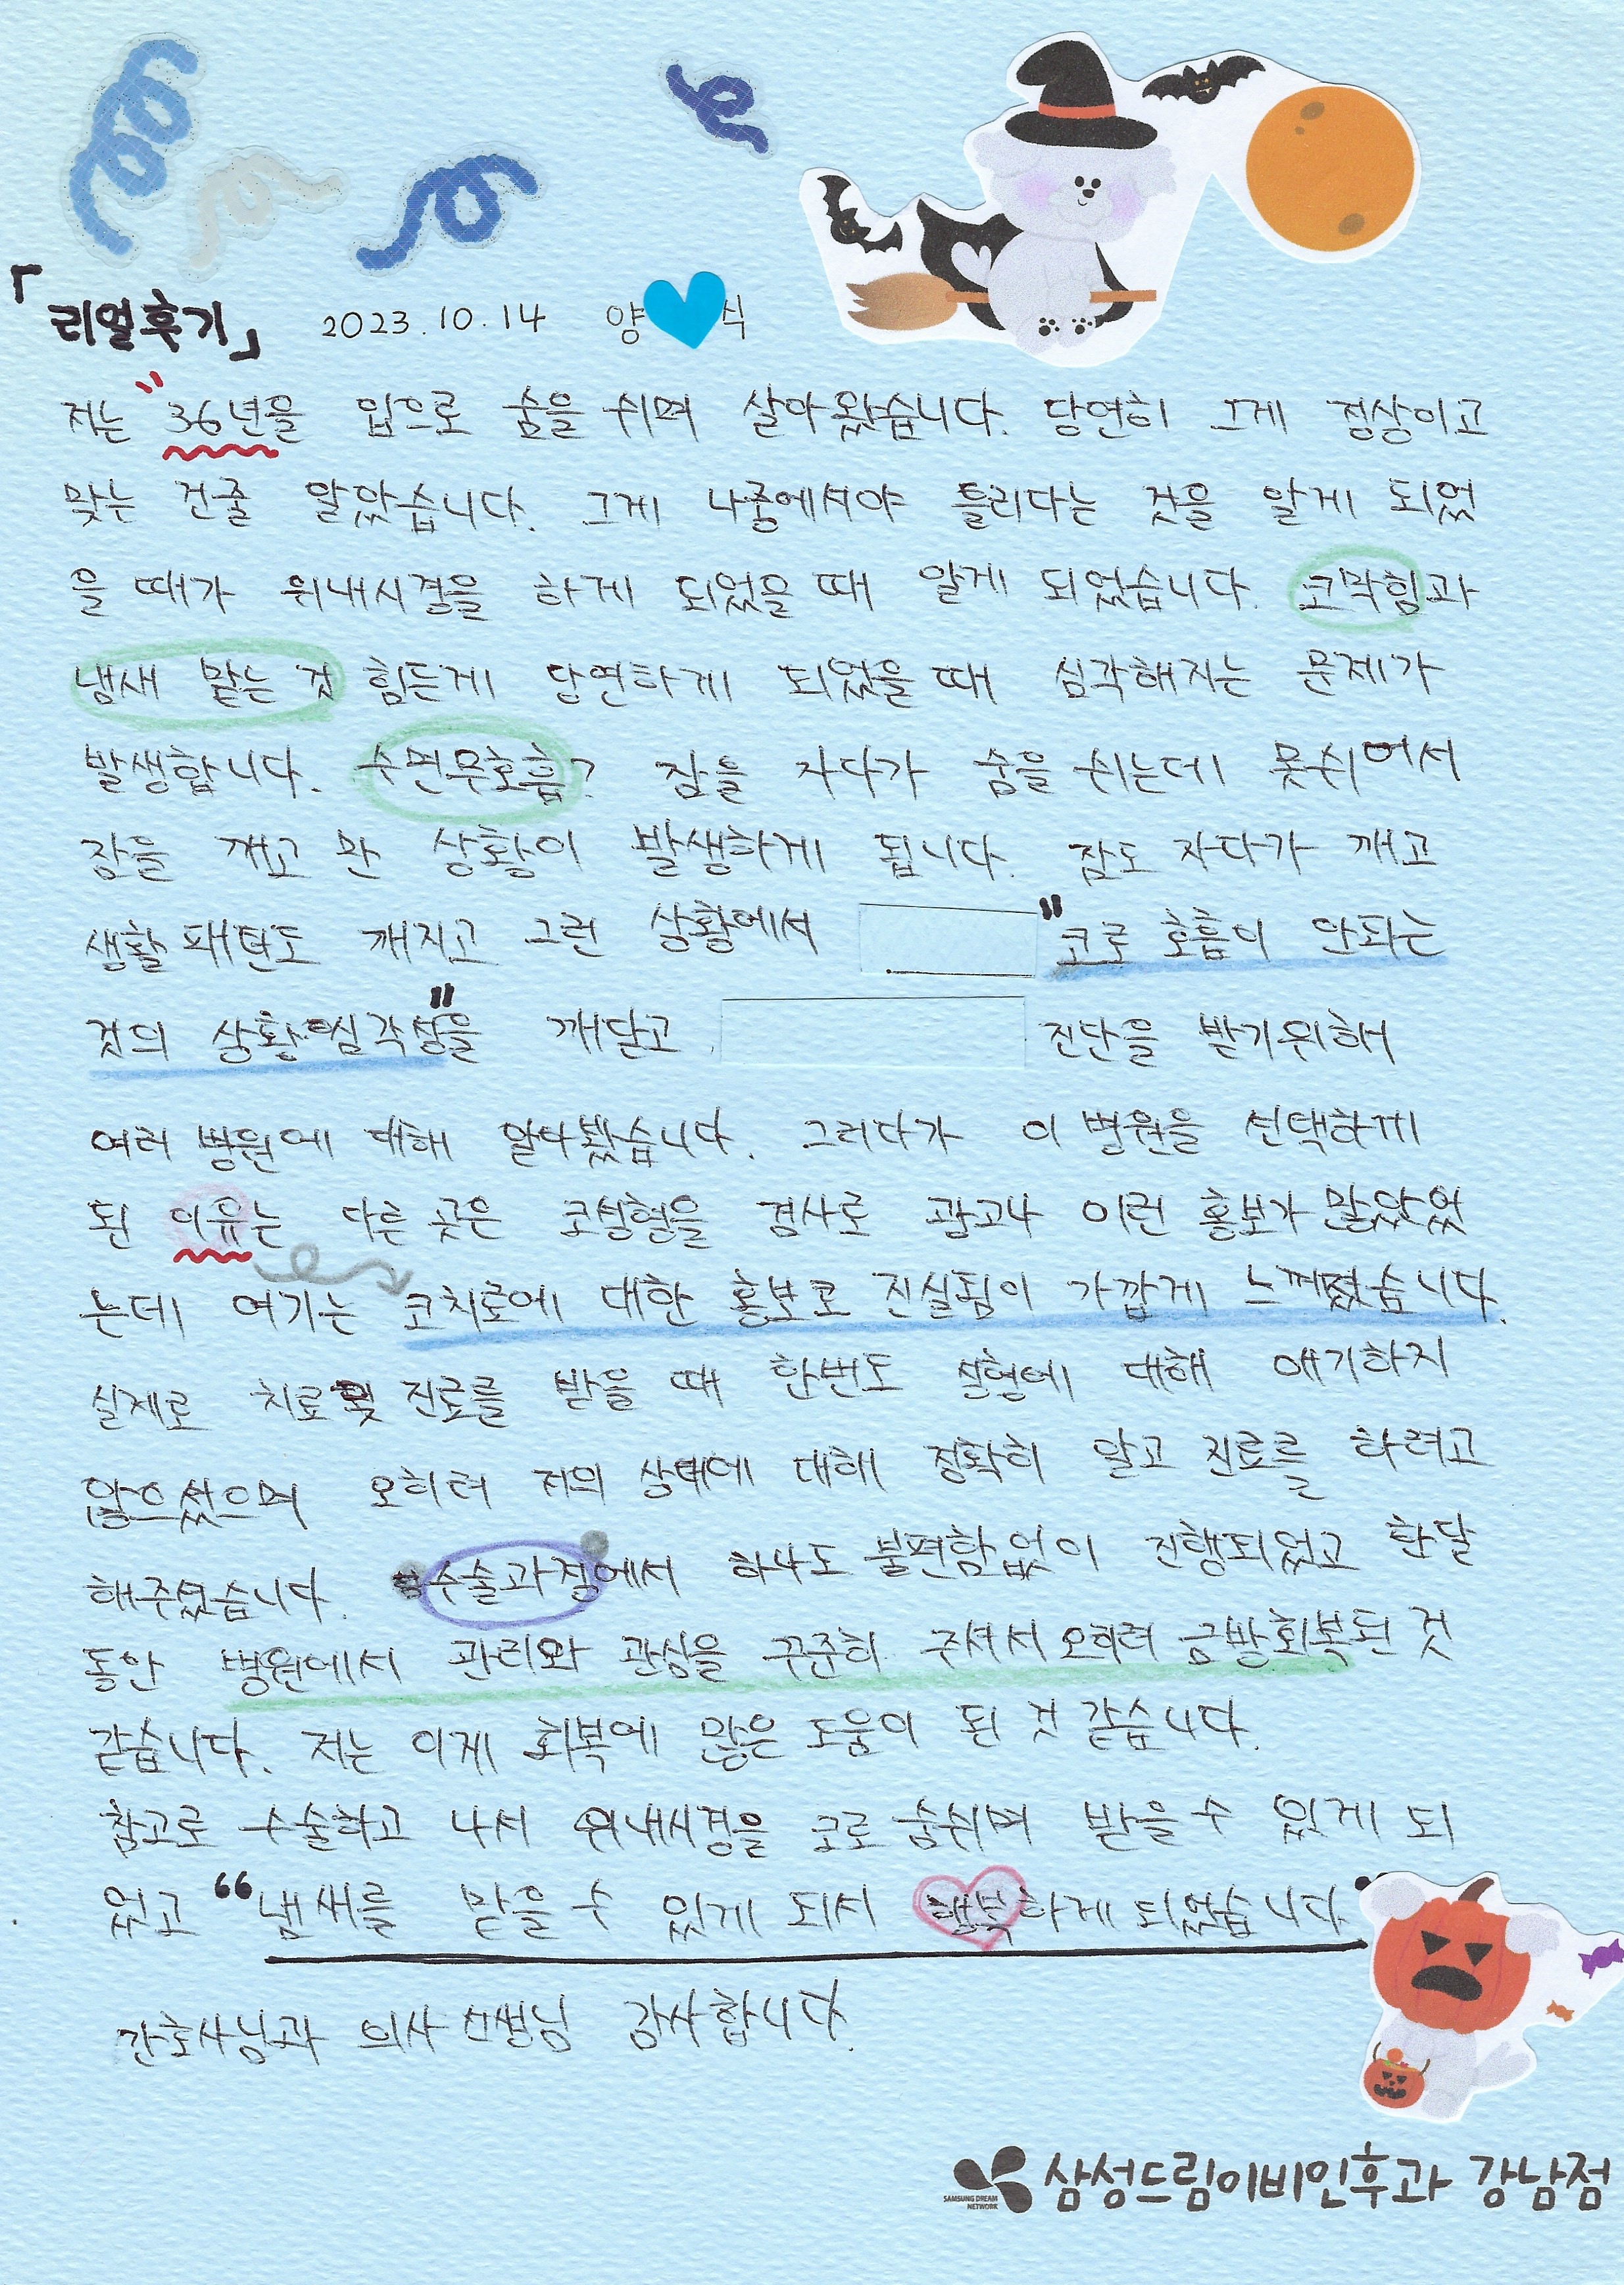 「리얼후기」 2023.10.14 양 식
저는 "36년을 입으로 숨을 쉬며 살아왔습니다. 당연히 그게 정상이고
맞는 건줄 알았습니다. 그게 나중에서야 틀리다는 것을 알게 되었
을 때가 위내시경을 하게 되었을 때 알게 되었습니다. 코막힘과
냄새 맡는 것 힘든게 당연하게 되었을 때 심각해지는 문제가
발생합니다. 수면무호흡? 잠을 자다가 숨을 쉬는데 못쉬어서
잠을 깨고 만 상황이 발생하게 됩니다. 잠도 자다가 깨고
생활패턴도 깨지고 그런 상황에서 "코로 호흡이 안되는
것의 상황 심각성"을 깨닫고 진단을 받기위해
여러 병원에 대해 알아봤습니다. 그러다가 이 병원을 선택하게
된 이유는 다른 곳은 코성형을 겸사로 광고나 이런 홍보가 많았었
는데 여기는 코치료에 대한 홍보로 진실됨이 가깝게 느껴졌습니다.
실제로 치료 및 진료를 받을 때 한번도 성형에 대해 얘기하지
않으셨으며 오히려 저의 상태에 대해 정확히 알고 진료를 하려고
해주셨습니다. 수술과정에서 하나도 불편함없이 진행되었고 한달
동안 병원에서 관리와 관심을 꾸준히 주셔서 오히려 금방회복된 것
같습니다. 저는 이게 회복에 많은 도움이 된 것 같습니다.
참고로 수술하고 나서 위내시경을 코로 숨쉬며 받을 수 있게 되
었고 “냄새를 맡을 수 있게 되서 행복하게 되었습니다.
간호사님과 의사선생님 감사합니다.
SAMSUNG DREAM NETWORK 삼성드림이비인후과 강남점